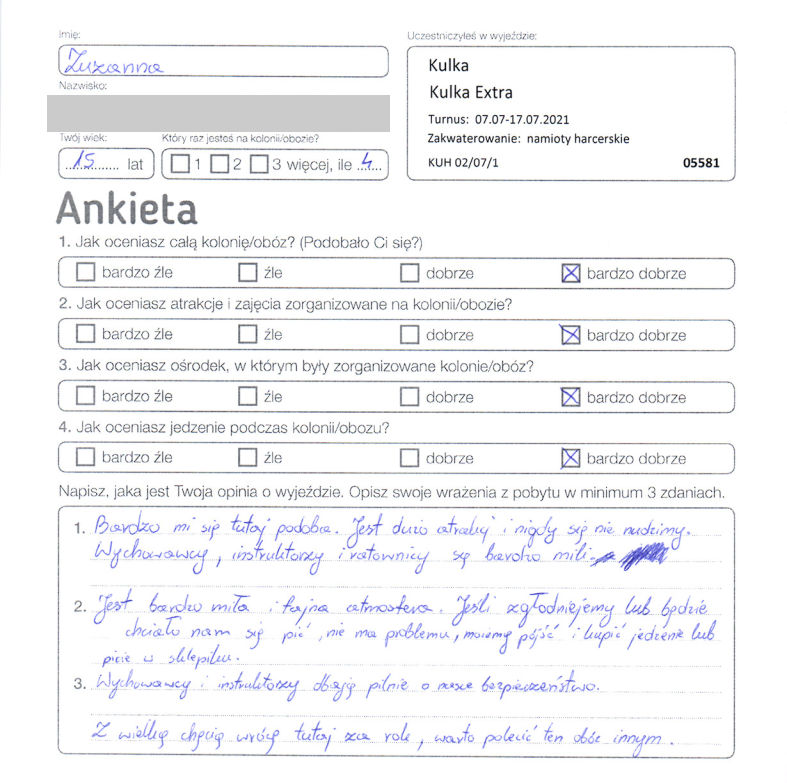 Imię:
Zuzanna
Nazwisko:
Twój wiek:
Który raz jesteś na kolonii/obozie?
15 lat
1 2 3 więcej, ile 4
Uczestniczyłeś w wyjeździe:
Kulka
Kulka Extra
Turnus: 07.07-17.07.2021
Zakwaterowanie: namioty harcerskie
KUH 02/07/1 05581
Ankieta
1. Jak oceniasz całą kolonię/obóz? (Podobało Ci się?)
bardzo źle źle dobrze bardzo dobrze
2. Jak oceniasz atrakcje i zajęcia zorganizowane na kolonii/obozie?
bardzo źle źle dobrze bardzo dobrze
3. Jak oceniasz ośrodek, w którym były zorganizowane kolonie/obóz?
bardzo źle źle dobrze bardzo dobrze
4. Jak oceniasz jedzenie podczas kolonii/obozu?
bardzo źle źle dobrze bardzo dobrze
Napisz, jaka jest Twoja opinia o wyjeździe. Opisz swoje wrażenia z pobytu w minimum 3 zdaniach.
1. Bardzo mi się tutaj podoba. Jest dużo atrakcji i nigdy się nie nudzimy.
Wychowawcy, instruktorzy i ratownicy są bardzo mili
2. Jest bardzo miła i fajna atmosfera. Jeśli zgłodniejemy lub będzie
chciało nam się pić, nie ma problemu, możemy pójść i kupić jedzenie lub
picie w sklepiku.
3. Wychowawcy i instruktorzy dbają pilnie o nasze bezpieczeństwo.
Z wielką chęcią wrócę tutaj za rok, warto polecić ten obóz innym.